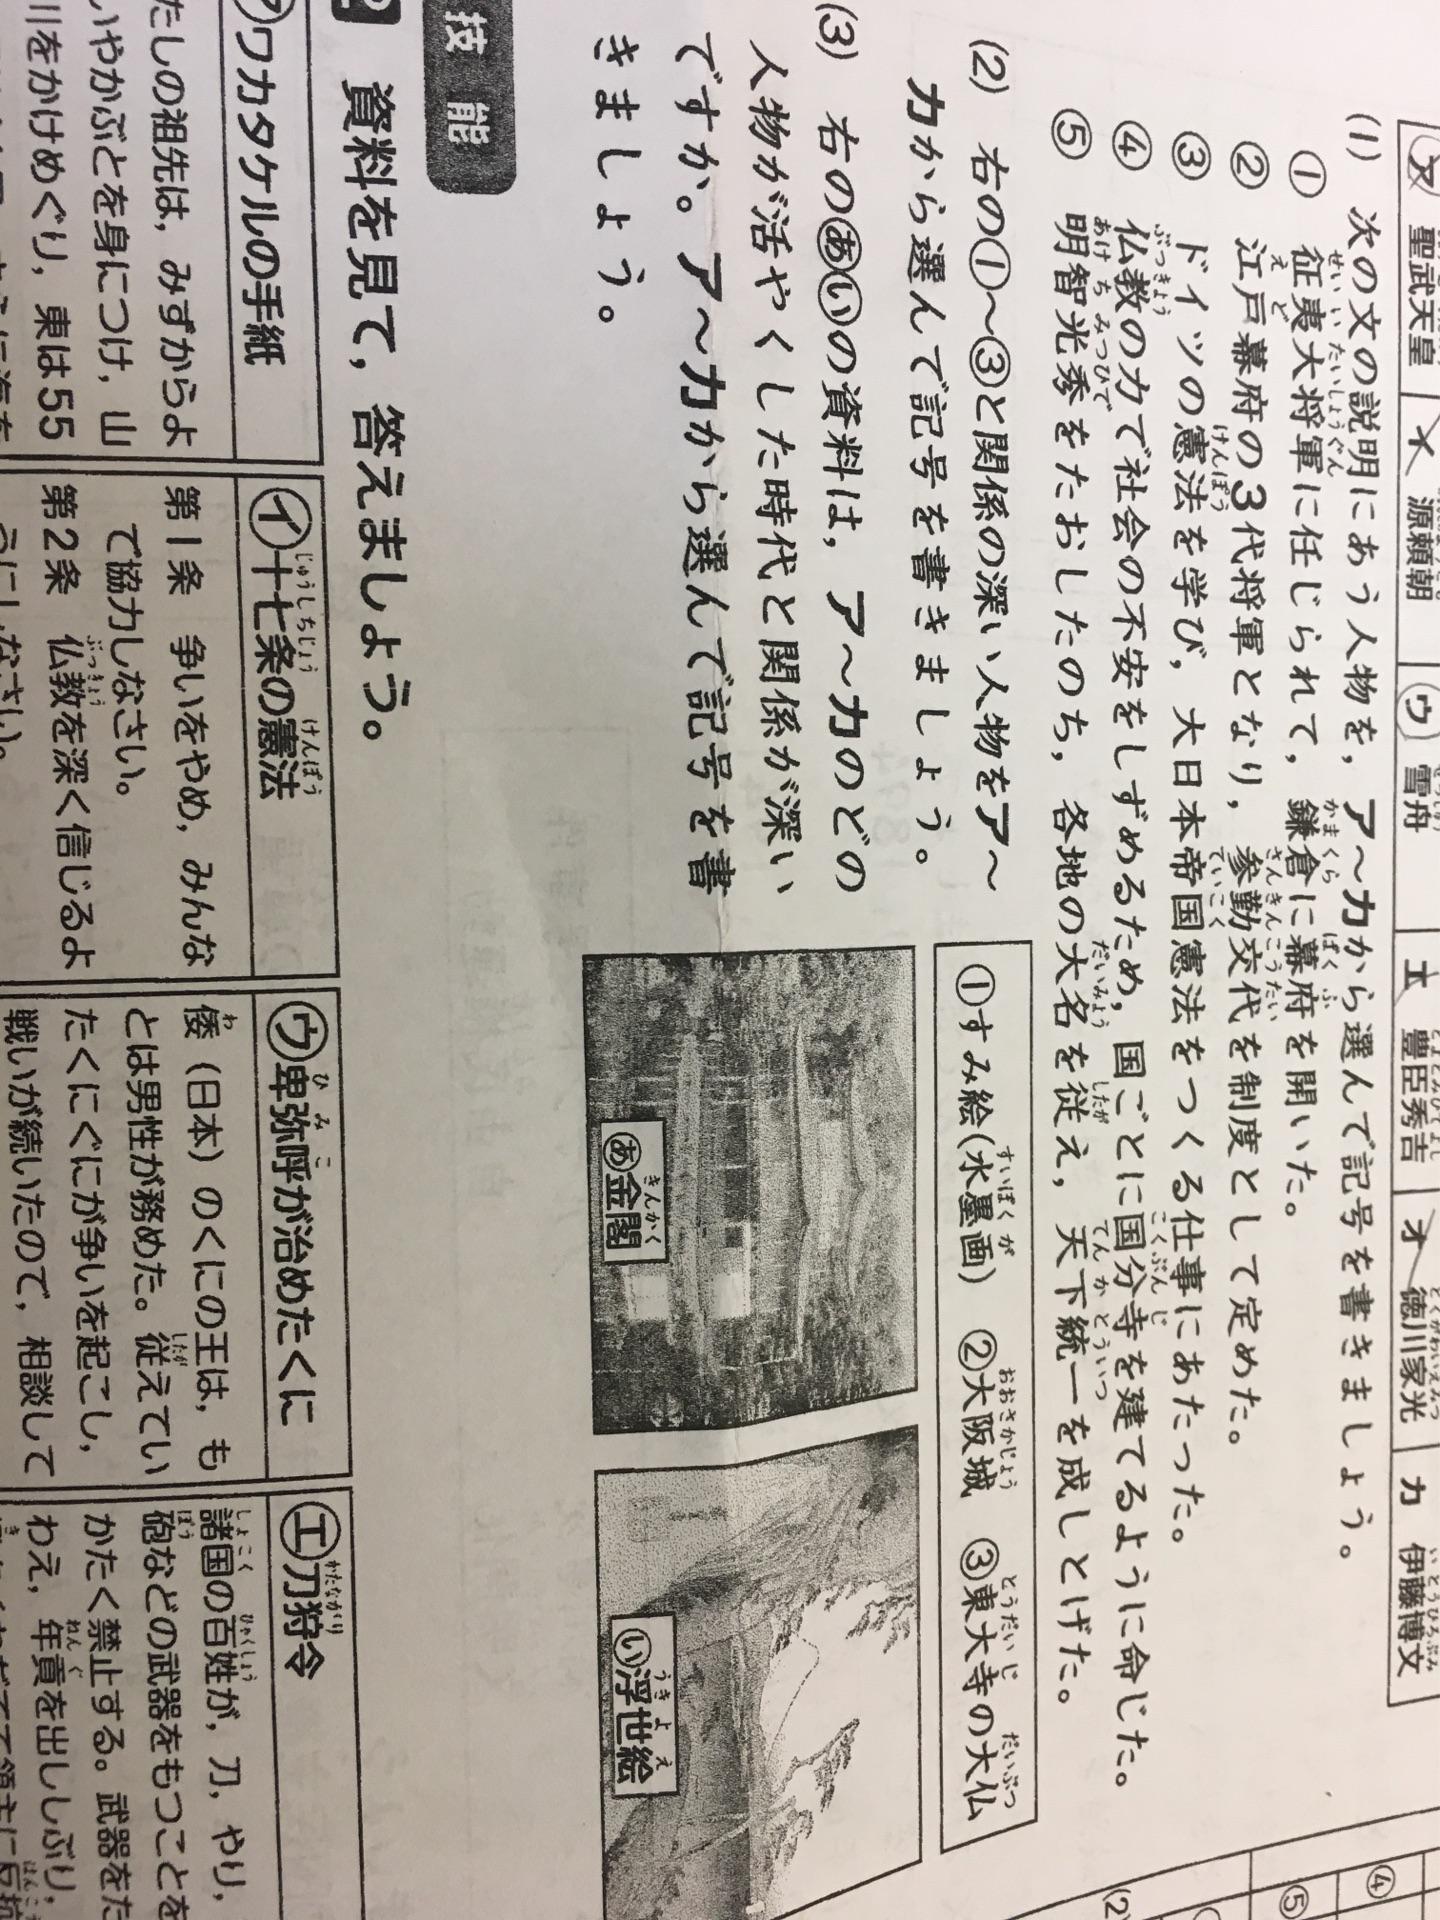 ア 聖武天皇 イ 源頼朝 ウ 雪舟 エ 豊臣秀吉 オ 徳川家光 カ 伊藤博文
(1) 次の文の説明にあう人物を，ア～カから選んで記号を書きましょう。
① 征夷大将軍に任じられて，鎌倉に幕府を開いた。
② 江戸幕府の3代将軍となり，参勤交代を制度として定めた。
③ ドイツの憲法を学び，大日本帝国憲法をつくる仕事にあたった。
④ 仏教の力で社会の不安をしずめるため，国ごとに国分寺を建てるように命じた。
⑤ 明智光秀をたおしたのち，各地の大名を従え，天下統一を成しとげた。
(2) 右の①～③と関係の深い人物をア～
カから選んで記号を書きましょう。
(3) 右のあいの資料は，ア～カのどの
人物が活やくした時代と関係が深い
ですか。ア～カから選んで記号を書
きましょう。
①すみ絵(水墨画) ②大阪城 ③東大寺の大仏
あ金閣
い浮世絵
④
⑤
(2)
技能
2 資料を見て，答えましょう。
ア ワカタケルの手紙
たしの祖先は，みずからよ
いやかぶとを身につけ，山
川をかけめぐり，東は55
イ 十七条の憲法
第1条 争いをやめ，みんな
で協力しなさい。
第2条 仏教を深く信じるよ
うにしなさい。
ウ 卑弥呼が治めたくに
倭（日本）のくにの王は，も
とは男性が務めた。従えてい
たくにぐにが争いを起こし，
戦いが続いたので，相談して
エ 刀狩令
諸国の百姓が，刀，やり，
砲などの武器をもつことを
かたく禁止する。武器をた
わえ，年貢を出ししぶり，